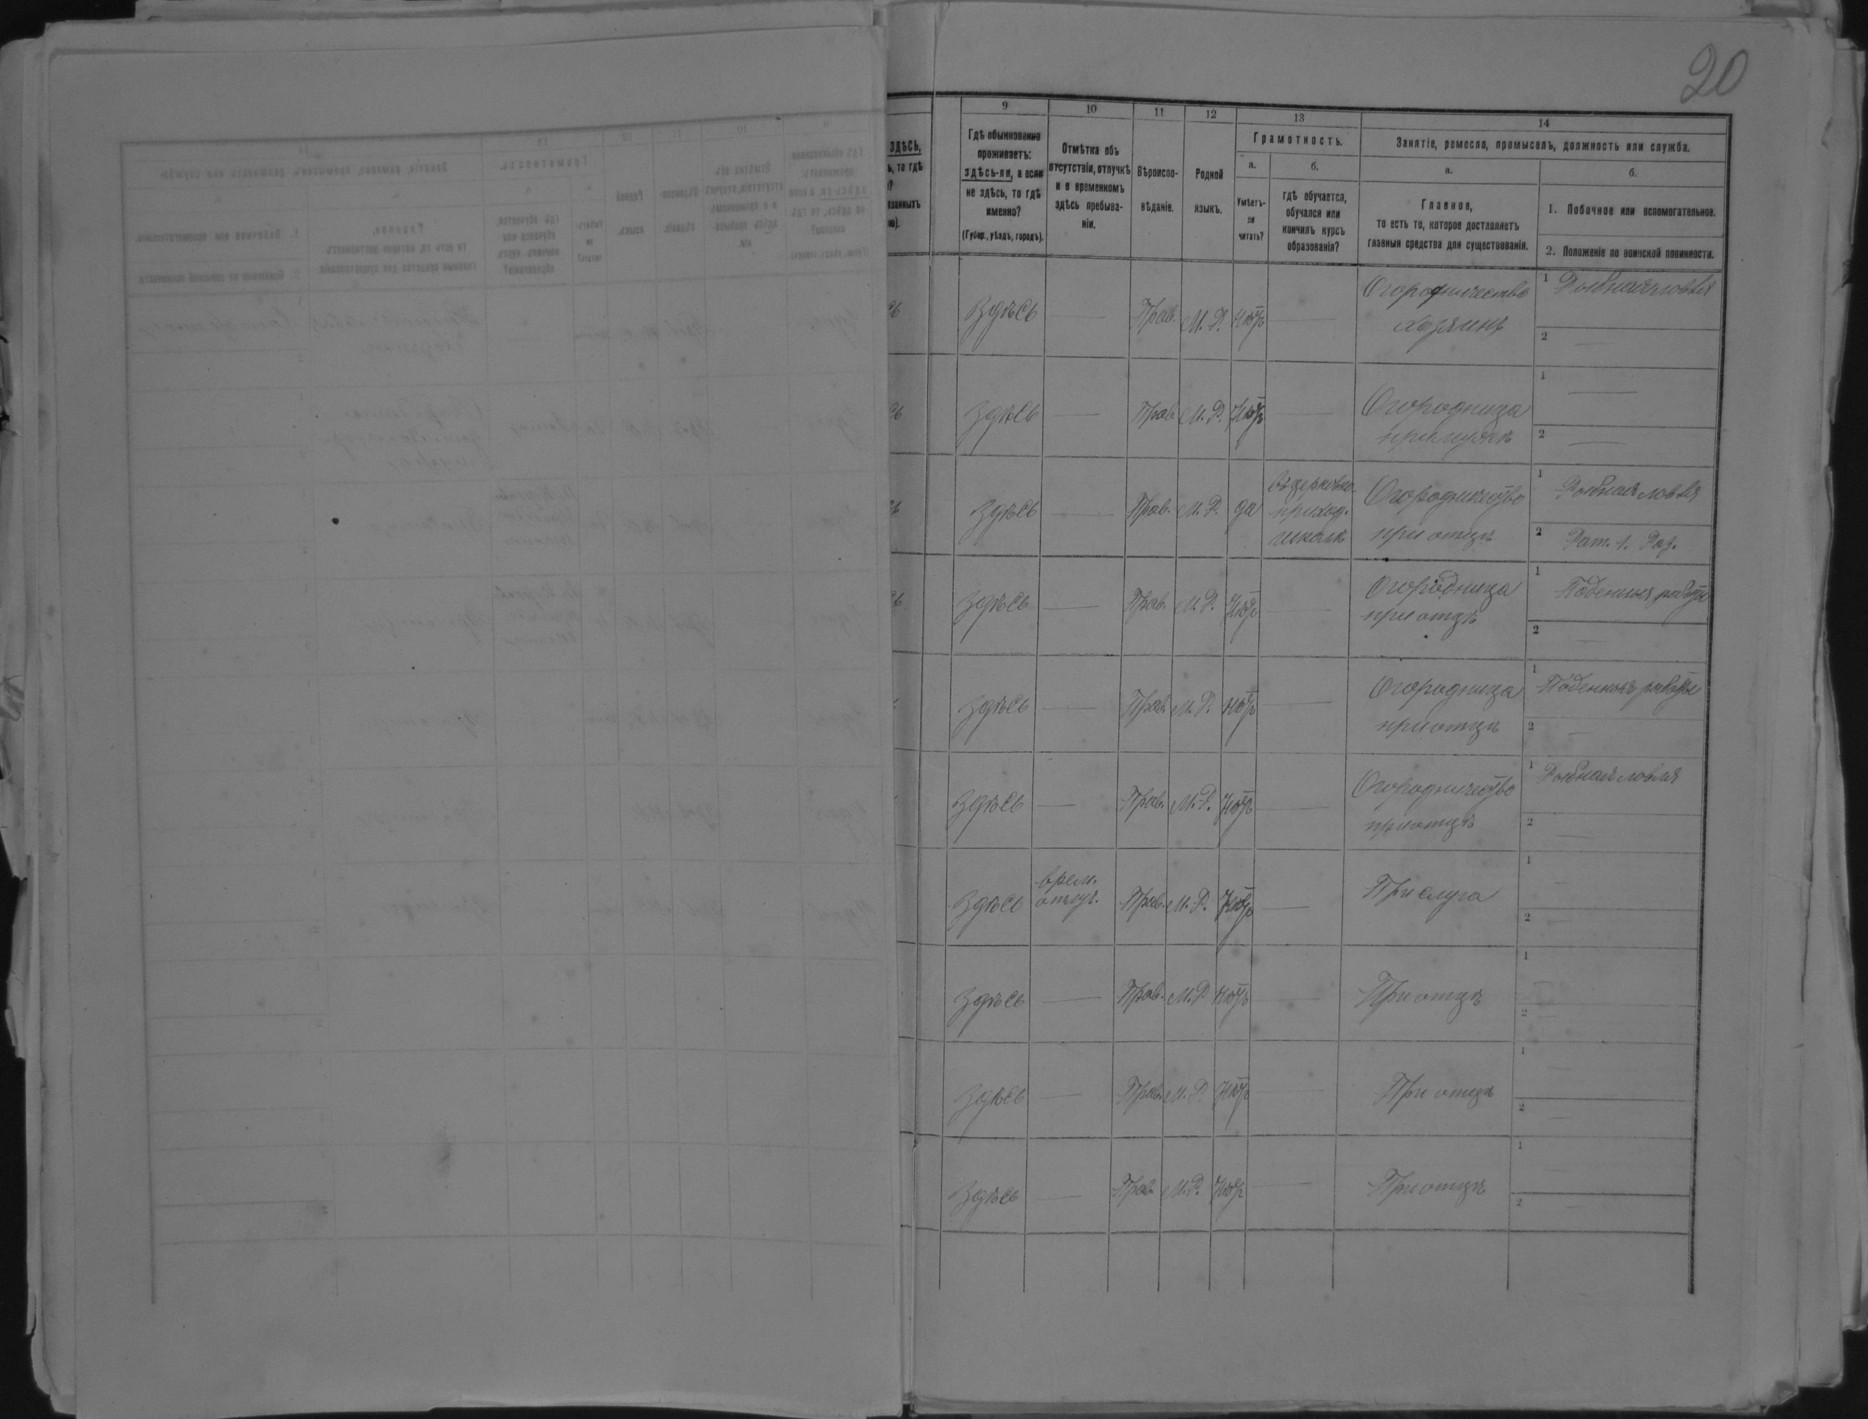 20
9
10
11
12
13
14
ЗДѢСЬ,
Гдѣ обыкновенно
проживаетъ:
здѣсь-ли, а если
не здѣсь, то гдѣ
именно?
(Губер., уѣздъ, городъ).
Отмѣтка объ
отсутствіи, отлучкѣ
и о временномъ
здѣсь пребыва-
ніи.
Вѣроиспо-
вѣданіе.
Родной
языкъ.
Грамотность.
а.
б.
Умѣетъ-
ли
читать?
гдѣ обучается,
обучался или
кончилъ курсъ
образованія?
Занятіе, ремесло, промыселъ, должность или служба.
а.
б.
Главное,
то есть то, которое доставляетъ
главныя средства для существованія.
1. Побочное или вспомогательное.
2. Положеніе по воинской повинности.
Здѣсь — Прав. М. Р. Нѣтъ — Огородничество
хозяинъ
1 Рыбная ловля
2 —
Здѣсь — Прав. М. Р. Нѣтъ — Огородница
при мужѣ
1 —
2 —
Здѣсь — Прав. М. Р. да въ церковно-
приход.
школѣ
Огородничество
при отцѣ
1 Рыбная ловля
2 Рат. 1. Раз.
Здѣсь — Прав. М. Р. Нѣтъ — Огородница
при отцѣ
1 Поденныя работы
2 —
Здѣсь — Прав. М. Р. Нѣтъ — Огородница
при отцѣ
1 Поденныя работы
2 —
Здѣсь — Прав. М. Р. Нѣтъ — Огородничество
при отцѣ
1 Рыбная ловля
2 —
Здѣсь врем.
отлуч.
Прав. М. Р. Нѣтъ — Прислуга
1 —
2 —
Здѣсь — Прав. М. Р. Нѣтъ — При отцѣ
1 —
2 —
Здѣсь — Прав. М. Р. Нѣтъ — При отцѣ
1 —
2 —
Здѣсь — Прав. М. Р. Нѣтъ — При отцѣ
1 —
2 —